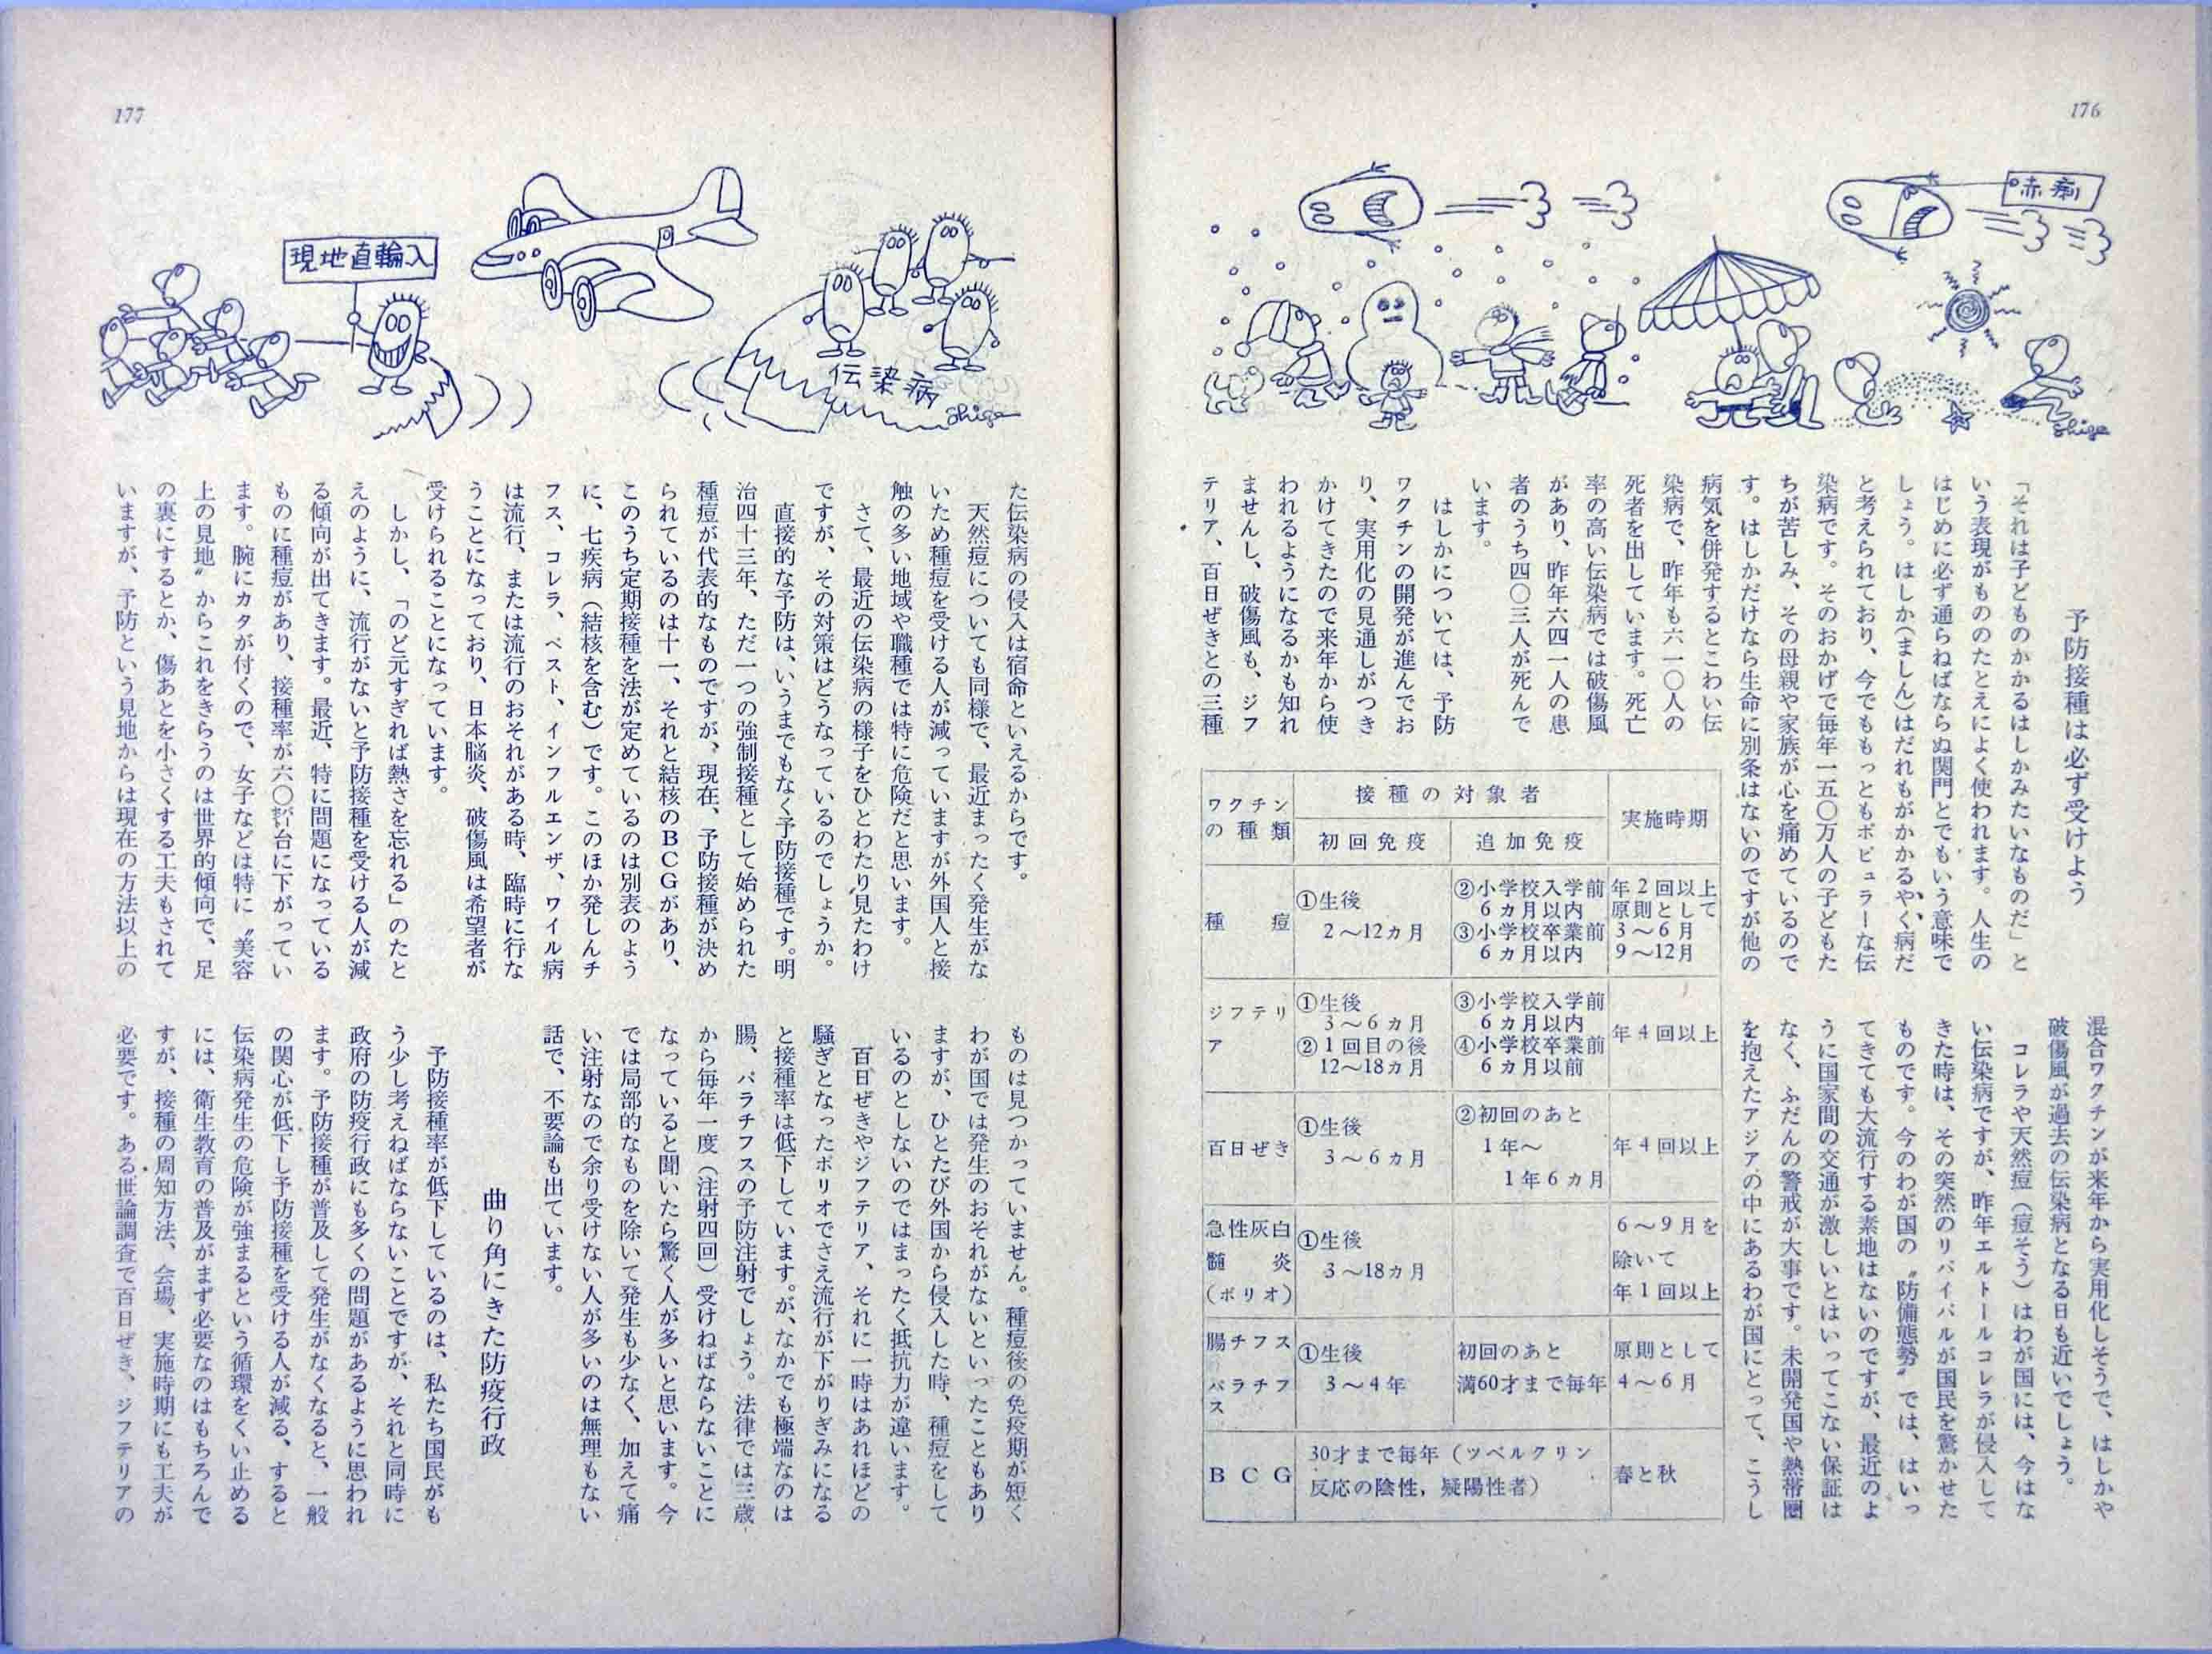 176
赤痢
shige
予防接種は必ず受けよう
「それは子どものかかるはしかみたいなものだ」と
いう表現がもののたとえによく使われます。人生の
はじめに必ず通らねばならぬ関門とでもいう意味で
しょう。はしか(ましん)はだれもがかかるやく病だ
と考えられており、今でももっともポピュラーな伝
染病です。そのおかげで毎年一五〇万人の子どもた
ちが苦しみ、その母親や家族が心を痛めているので
す。はしかだけなら生命に別条はないのですが他の
病気を併発するとこわい伝
染病で、昨年も六一〇人の
死者を出しています。死亡
率の高い伝染病では破傷風
があり、昨年六四一人の患
者のうち四〇三人が死んで
います。
はしかについては、予防
ワクチンの開発が進んでお
り、実用化の見通しがつき
かけてきたので来年から使
われるようになるかも知れ
ませんし、破傷風も、ジフ
テリア、百日ぜきとの三種
混合ワクチンが来年から実用化しそうで、はしかや
破傷風が過去の伝染病となる日も近いでしょう。
コレラや天然痘(痘そう)はわが国には、今はな
い伝染病ですが、昨年エルトールコレラが侵入して
きた時は、その突然のリバイバルが国民を驚かせた
ものです。今のわが国の〝防備態勢〟では、はいっ
てきても大流行する素地はないのですが、最近のよ
うに国家間の交通が激しいとはいってこない保証は
なく、ふだんの警戒が大事です。未開発国や熱帯圏
を抱えたアジアの中にあるわが国にとって、こうし
ワクチンの種類
接種の対象者
実施時期
初回免疫
追加免疫
種痘
①生後
2〜12カ月
②小学校入学前
6カ月以内
③小学校卒業前
6カ月以内
年2回以上
原則として
3〜6月
9〜12月
ジフテリア
①生後
3〜6カ月
②1回目の後
12〜18カ月
③小学校入学前
6カ月以内
④小学校卒業前
6カ月以前
年4回以上
百日ぜき
①生後
3〜6カ月
②初回のあと
1年〜
1年6カ月
年4回以上
急性灰白
髄炎
(ポリオ)
①生後
3〜18カ月
6〜9月を
除いて
年1回以上
腸チフス
パラチフス
①生後
3〜4年
初回のあと
満60才まで毎年
原則として
4〜6月
BCG
30才まで毎年(ツベルクリン
反応の陰性,疑陽性者)
春と秋
177
現地直輸入
伝染病
shige
た伝染病の侵入は宿命といえるからです。
天然痘についても同様で、最近まったく発生がな
いため種痘を受ける人が減っていますが外国人と接
触の多い地域や職種では特に危険だと思います。
さて、最近の伝染病の様子をひとわたり見たわけ
ですが、その対策はどうなっているのでしょうか。
直接的な予防は、いうまでもなく予防接種です。明
治四十三年、ただ一つの強制接種として始められた
種痘が代表的なものですが、現在、予防接種が決め
られているのは十一、それと結核のBCGがあり、
このうち定期接種を法が定めているのは別表のよう
に、七疾病(結核を含む)です。このほか発しんチ
フス、コレラ、ペスト、インフルエンザ、ワイル病
は流行、または流行のおそれがある時、臨時に行な
うことになっており、日本脳炎、破傷風は希望者が
受けられることになっています。
しかし、「のど元すぎれば熱さを忘れる」のたと
えのように、流行がないと予防接種を受ける人が減
る傾向が出てきます。最近、特に問題になっている
ものに種痘があり、接種率が六〇㌫台に下がってい
ます。腕にカタが付くので、女子などは特に〝美容
上の見地〟からこれをきらうのは世界的傾向で、足
の裏にするとか、傷あとを小さくする工夫もされて
いますが、予防という見地からは現在の方法以上の
ものは見つかっていません。種痘後の免疫期が短く
わが国では発生のおそれがないといったこともあり
ますが、ひとたび外国から侵入した時、種痘をして
いるのとしないのではまったく抵抗力が違います。
百日ぜきやジフテリア、それに一時はあれほどの
騒ぎとなったポリオでさえ流行が下がりぎみになる
と接種率は低下しています。が、なかでも極端なのは
腸、パラチフスの予防注射でしょう。法律では三歳
から毎年一度(注射四回)受けねばならないことに
なっていると聞いたら驚く人が多いと思います。今
では局部的なものを除いて発生も少なく、加えて痛
い注射なので余り受けない人が多いのは無理もない
話で、不要論も出ています。
曲り角にきた防疫行政
予防接種率が低下しているのは、私たち国民がも
う少し考えねばならないことですが、それと同時に
政府の防疫行政にも多くの問題があるように思われ
ます。予防接種が普及して発生がなくなると、一般
の関心が低下し予防接種を受ける人が減る、すると
伝染病発生の危険が強まるという循環をくい止める
には、衛生教育の普及がまず必要なのはもちろんで
すが、接種の周知方法、会場、実施時期にも工夫が
必要です。ある世論調査で百日ぜき、ジフテリアの